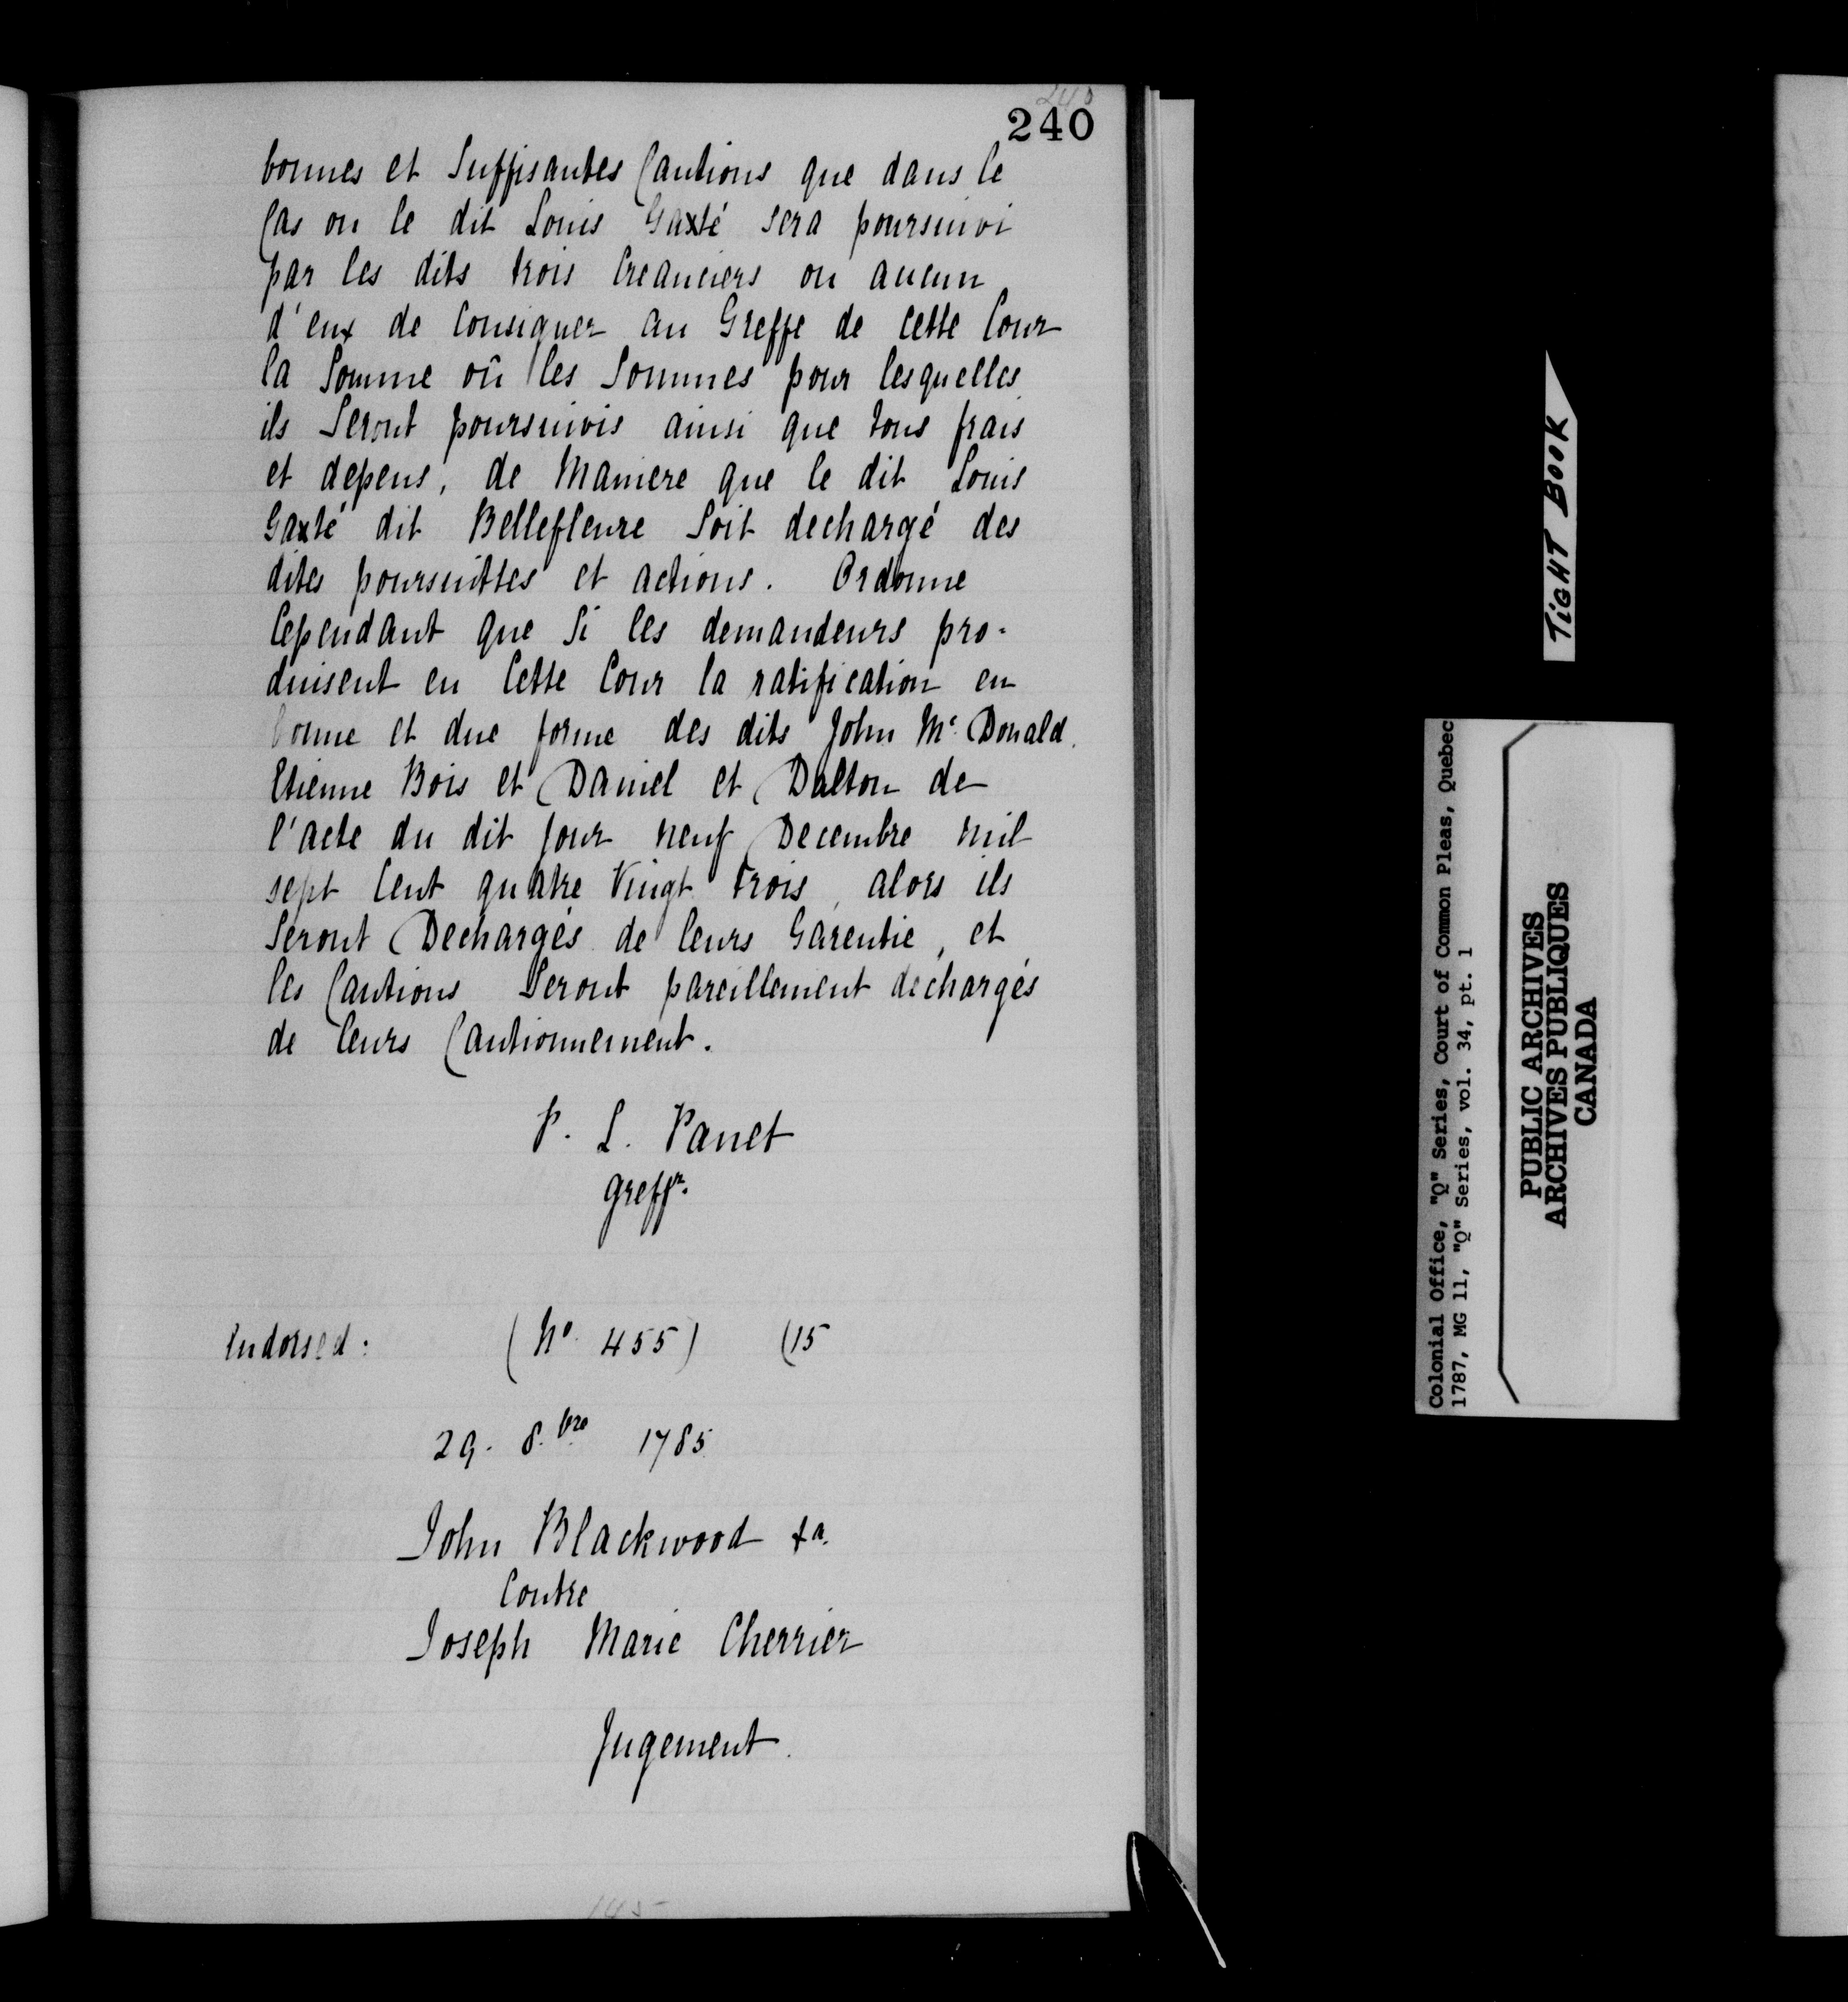 240
240
bonnes et Suffisantes Cautions que dans le
Cas ou le dit Louis Gaxté sera poursuivi
par les dits trois Creanciers ou aucun
d'eux de Consigner au Greffe de Cette Cour
la Somme oû les Sommes pour lesquelles
ils Seront poursuivis ainsi que tous frais
et depens, de Maniere que le dit Louis
Gaxté dit Bellefleure Soit dechargé des
dites poursuittes et actions. Ordonne
Cependant que Si les demandeurs pro-
duisent en Cette Cour la ratification en
bonne et due forme des dits John Mc Donald.
Etienne Bois et Daniel et Dalton de
l'acte du dit Jour neuf Decembre mil
sept Cent quatre Vingt trois, alors ils
Seront Dechargés de leurs Garentie, et
les Cautions Seront pareillement dechargés
de leurs Cautionnement.
P. L. Panet
greffr.
Endorsed: (No. 455) (15
29. 8.bre 1785
John Blackwood &a.
Contre
Joseph Marie Cherrier
Jugement.
145
TIGHT BOOK
Colonial Office, "Q" Series, Court of Common Pleas, Quebec
1787, MG 11, "Q" Series, vol. 34, pt. 1
PUBLIC ARCHIVES
ARCHIVES PUBLIQUES
CANADA